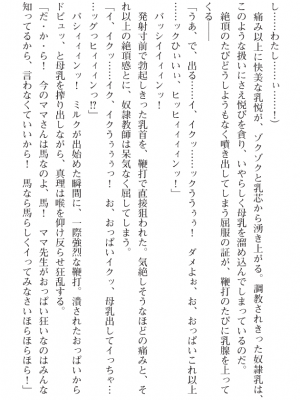 し……わたし……ぃ……！」
痛み以上に快美な乳悦が、ゾクゾクと乳芯から湧き上がる。調教されきった奴隷乳は、
このような扱いにさえ悦びを貪り、いやらしく母乳を溜め込んでしまっているのだ。
絶頂のたびどうしようもなく噴き出してしまう屈服の証が、鞭打のたびに乳腺を上って
くる――
「うあ、で、出る……イ、イクッ……ックゥうぅぅ！　ダメよぉ、お、おっぱいこれ以上
……ックひぃいぃ、ヒッヒィィィンッ！」
バシイィィンッ！
発射寸前で勃起しきった乳首を、鞭打で直接狙われた。気絶しそうなほどの痛みと、そ
れ以上の絶頂感に、奴隷教師は呆気なく屈してしまう。
「イ、イクッ……イク、イクうぅぅっ！　お、おっぱいイクッ、母乳出してイっちゃ…
…ッグっヒィィィンっ!?」
バシィィンッ！　ミルクが出始めた瞬間に、一際強烈な鞭打。潰されたおっぱいから
ドビュッ、と母乳を搾り出しながら、真理は喉を仰け反らせ狂乱する。
「だ・か・ら！　今のママさんは馬なのよ、馬！　ママ先生がおっぱい狂いなのはみんな
知ってるから、言わなくていいから！　馬なら馬らしくイってみなさいほらほらほら！」